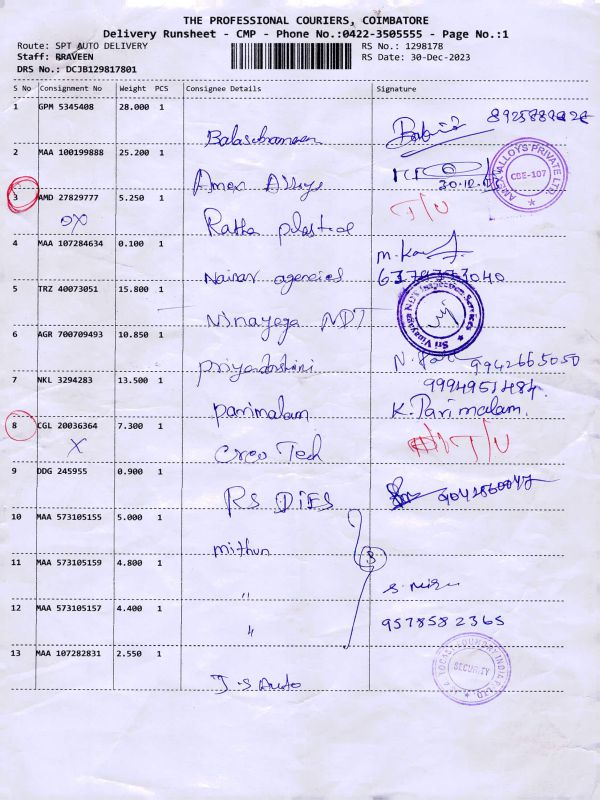 THE PROFESSIONAL COURIERS, COIMBATORE
Delivery Runsheet - CMP - Phone No.:0422-3505555 - Page No.:1
Route: SPT AUTO DELIVERY
RS No.: 1298178
Staff: BRAVEEN
RS Date: 30-Dec-2023
DRS No.: DCJB129817801
S No Consignment No Weight PCS Consignee Details Signature
1 GPM 5345408 28.000 1
2 MAA 100199888 25.200 1
30.12.23
ALLOYS PRIVATE LTD.
CBE-107
3 AMD 27829777 5.250 1 T/U
Ratha plastical
4 MAA 107284634 0.100 1
Nainar agencies
5 TRZ 40073051 15.800 1
Vinayaga NDT
Sri Vinayaga NDT Inspection Services
6 AGR 700709493 10.850 1
Priyadarshini 9942665050
7 NKL 3294283 13.500 1 9994951484.
Parrimalam K. Parimalam.
8 CGL 20036364 7.300 1 T/U
X Creo Tech
9 DDG 245955 0.900 1
RS DIES
10 MAA 573105155 5.000 1
mithun
11 MAA 573105159 4.800 1
"
12 MAA 573105157 4.400 1
" 9578582365
13 MAA 107282831 2.550 1
J.S Auto
SECURITY